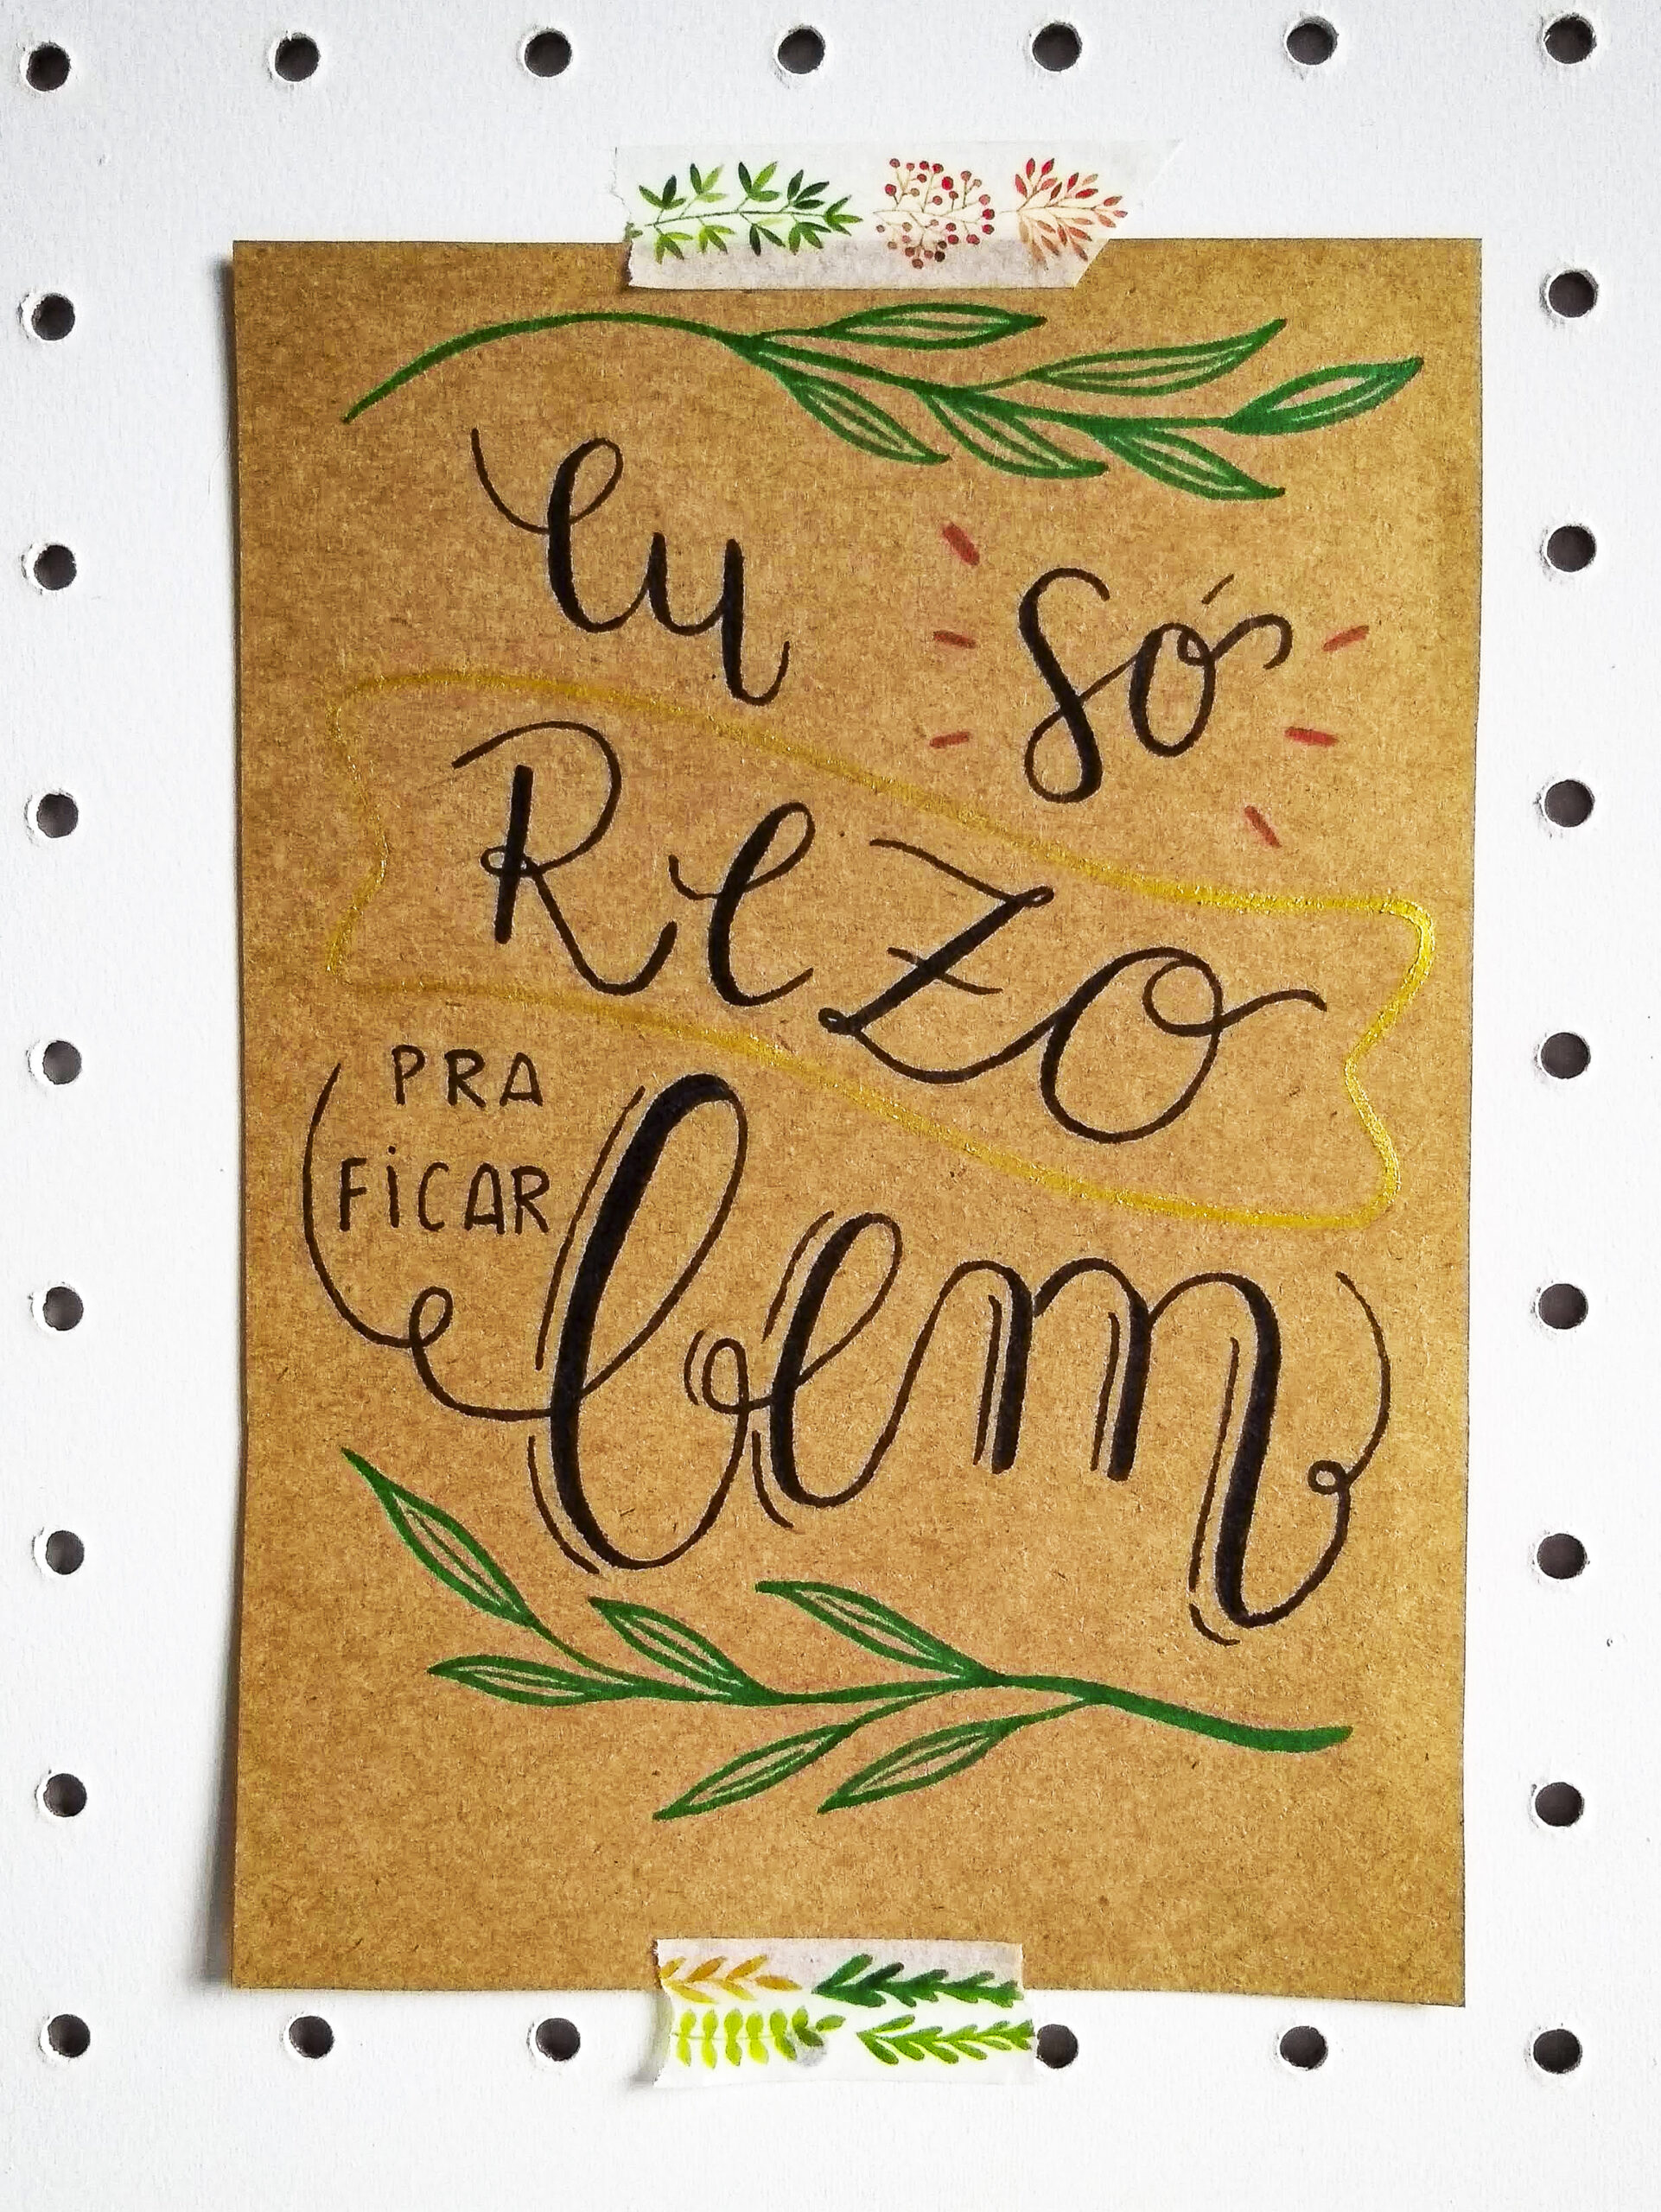 Eu só
REZO
PRA
FiCAR
bem